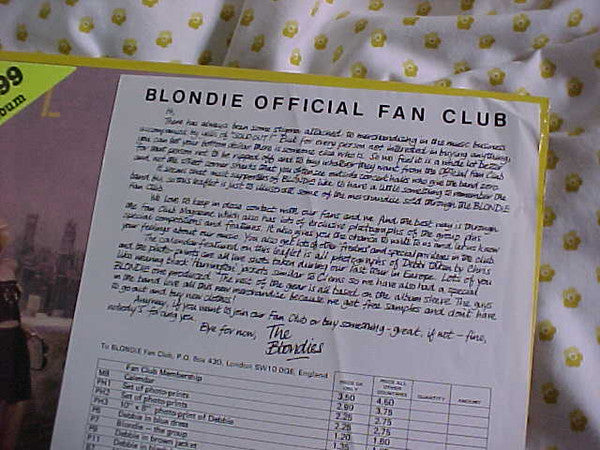 99
lbum
L
BLONDIE OFFICIAL FAN CLUB
Hi,
There has always been some stigma attached to merchandising in the music business
accompanied by yells of "SOLD OUT". But for every person not interested in buying anything
you can bet your bottom dollar there is someone else who is. So we feel it is a whole lot
for that person not to be ripped off and to buy whatever they want from the official fan club
and not the street corner sharks that you often see outside concert halls who give the band zero.
It seems that most supporters of BLONDIE like to have a little something to remember the
band by, so this leaflet is just to illustrate some of the merchandise sold through the BLONDIE
fan club.
We love to keep in close contact with our fans and we find the best way is through
the Fan Club Magazine which also has lots of exclusive photographs of the group, plus
special competitions and features. It also gives you a chance to write to us and let us know
your feelings about the group. You also get lots of other and special privileges in the club.
The calendar featured on this leaflet is all photographs of Debbie taken by Chris
and the photo prints are all live shots taken during our last tour in Europe. Lots of you
like wearing black jackets similar to Chris's so we have also had a special
BLONDIE one produced. The rest of the gear is all based on the album sleeve. The guys
in the band love all this new merchandise because we get free samples and don't have
to go out and buy new clothes!
Anyway, if you want to join our Fan Club or buy something - great, if not - fine,
nobody's forcing you.
Bye for now, The
Blondies
To BLONDIE Fan Club, P.O. Box 430, London SW10 0QE, England
PRICE UK ONLY
PRICE ALL OTHER COUNTRIES
QUANTITY
AMOUNT
MB Fan Club Membership 3.50 4.50
PH1 Calendar 2.90 3.75
PH2 Set of photo-prints 2.25 2.75
PH3 Set of photo-prints 2.25 2.75
P5 10" x 8" photo-print of Debbie 1.20 1.60
P6 Debbie in blue dress 1.35
P8 Blondie - the group
P11 Debbie in brown jacket